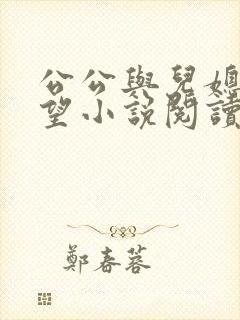 公公與兒媳
望小說閱讀
鄭春蓉